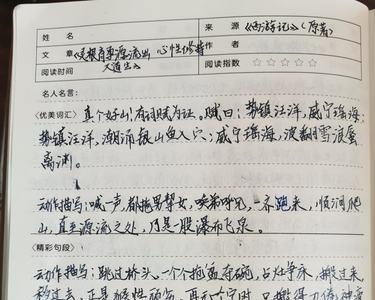 姓 名 来 源 《西游记》(原著)
文 章 《灵根育孕源流出 心性修持 作 者
大道生》
阅读时间 阅读指数 ☆☆☆☆☆
名人名言:
〈优美词汇〉真个好山!有词赋为证,赋曰:势镇汪洋,威宁瑶海;
势镇汪洋,潮涌银山鱼入穴;威宁瑶海,波翻雪浪蜃
离渊。
动作描写:喊一声,都拖男挈女,唤弟呼兄,一齐跑来,顺涧爬
山,直至源流之处,乃是一股瀑布飞泉。
〈精彩句段〉
动作描写:跳过桥头,一个个抢盆夺碗,占灶争床,搬过来,
移过去,正是猴性顽劣,再无一个宁时,只搬得力倦神疲